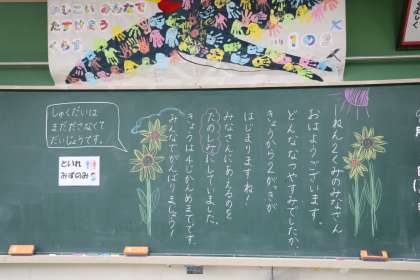 かしこい あたまで
たすけあう
くらす
1の2
一ねん2くみのみなさん
おはようございます。
どんな なつやすみでしたか。
きょうから2がっきが
はじまりますね！
みなさんにあえるのを
たのしみにしていました。
きょうは4じかんめまでです。
みんなでがんばりましょう！
しゅくだいは
まだださなくて
だいじょうです。
といれ
みずのみ